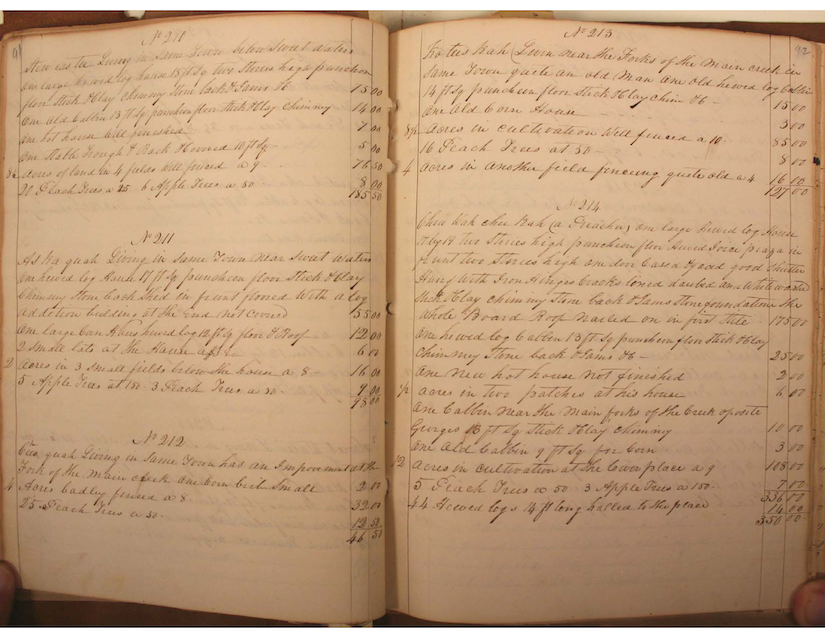 91
No 210
Living in Same Town below Sweet Water
one large hewed log house 18 ft Sq two Stories high puncheon
floor Stick & Clay Chimny Stone back & Jams &c 15 00
One old Cabbin 13 ft Sq puncheon floor Stick & Clay Chimny 14 00
one hot house well finished 7 00
One Stable Trough & Rack 10 ft Sq 5 00
acres of land in 4 fields well fenced a 9 - 76 50
20 Peach Trees a 25 6 Apple Trees a 50 - 8 00
185 50
No 211
As ka quah Living in same Town near Sweet Water
one hewed log House 17 ft Sq puncheon floor Stick & Clay
Chimny Stone back Shed in front floored with a log
addition building at the End not Covered 55 00
One large Corn House hewed log 12 ft Sq floor & Roof 12 00
2 small lots at the House 6 00
2 acres in 3 small fields below the house a 8 - 16 00
5 Apple Trees at 150 - 3 Peach Trees a 50 - 9 00
98 00
No 212
quah Living in same Town has an Improvement at the
Fork of the Main Creek One Corn Crib Small 2 00
4 Acres badly fenced a 8 32 00
25 Peach Trees a 50 - 12 50
46 50
92
No 213
Living near the Forks of the Main creek in
same Town quite an old Man One old hewed log Cabbin
14 ft Sq puncheon floor Stick & Clay chim &c - 15 00
One Old Corn House 3 00
8½ Acres in cultivation Well fenced a 10 - 85 00
16 Peach Trees at 50 - 8 00
4 acres in another field fencing quite old a 4 16 00
127 00
No 214
Chu wah (a Preacher) one large hewed log House
Two Stories high puncheon floor piaza in
front two Stories high one door Cased & good Shutter
Hung With Iron Hinges Cracks lined daubed on Whole
Stick & Clay chimny Stone back & Jams Stone foundation the
Whole Board Roof Nailed on in first Stile - 175 00
One hewed log Cabbin 13 ft Sq puncheon floor Stick & Clay
Chimny Stone back & Jams &c - 25 00
One New hot house not finished 2 00
½ acres in two patches at his house 6 00
One Cabbin near the Main forks of the Creek oposite
Georges 13 ft Sq Stick & Clay Chimny 10 00
One Old Cabbin 9 ft Sq for Corn 3 00
12 Acres in Cultivation at the place a 9 108 00
5 Peach Trees a 50 3 Apple Trees a 150 - 7 00
336 00
44 Hewed logs 14 ft long halled to the place 14 00
350 00